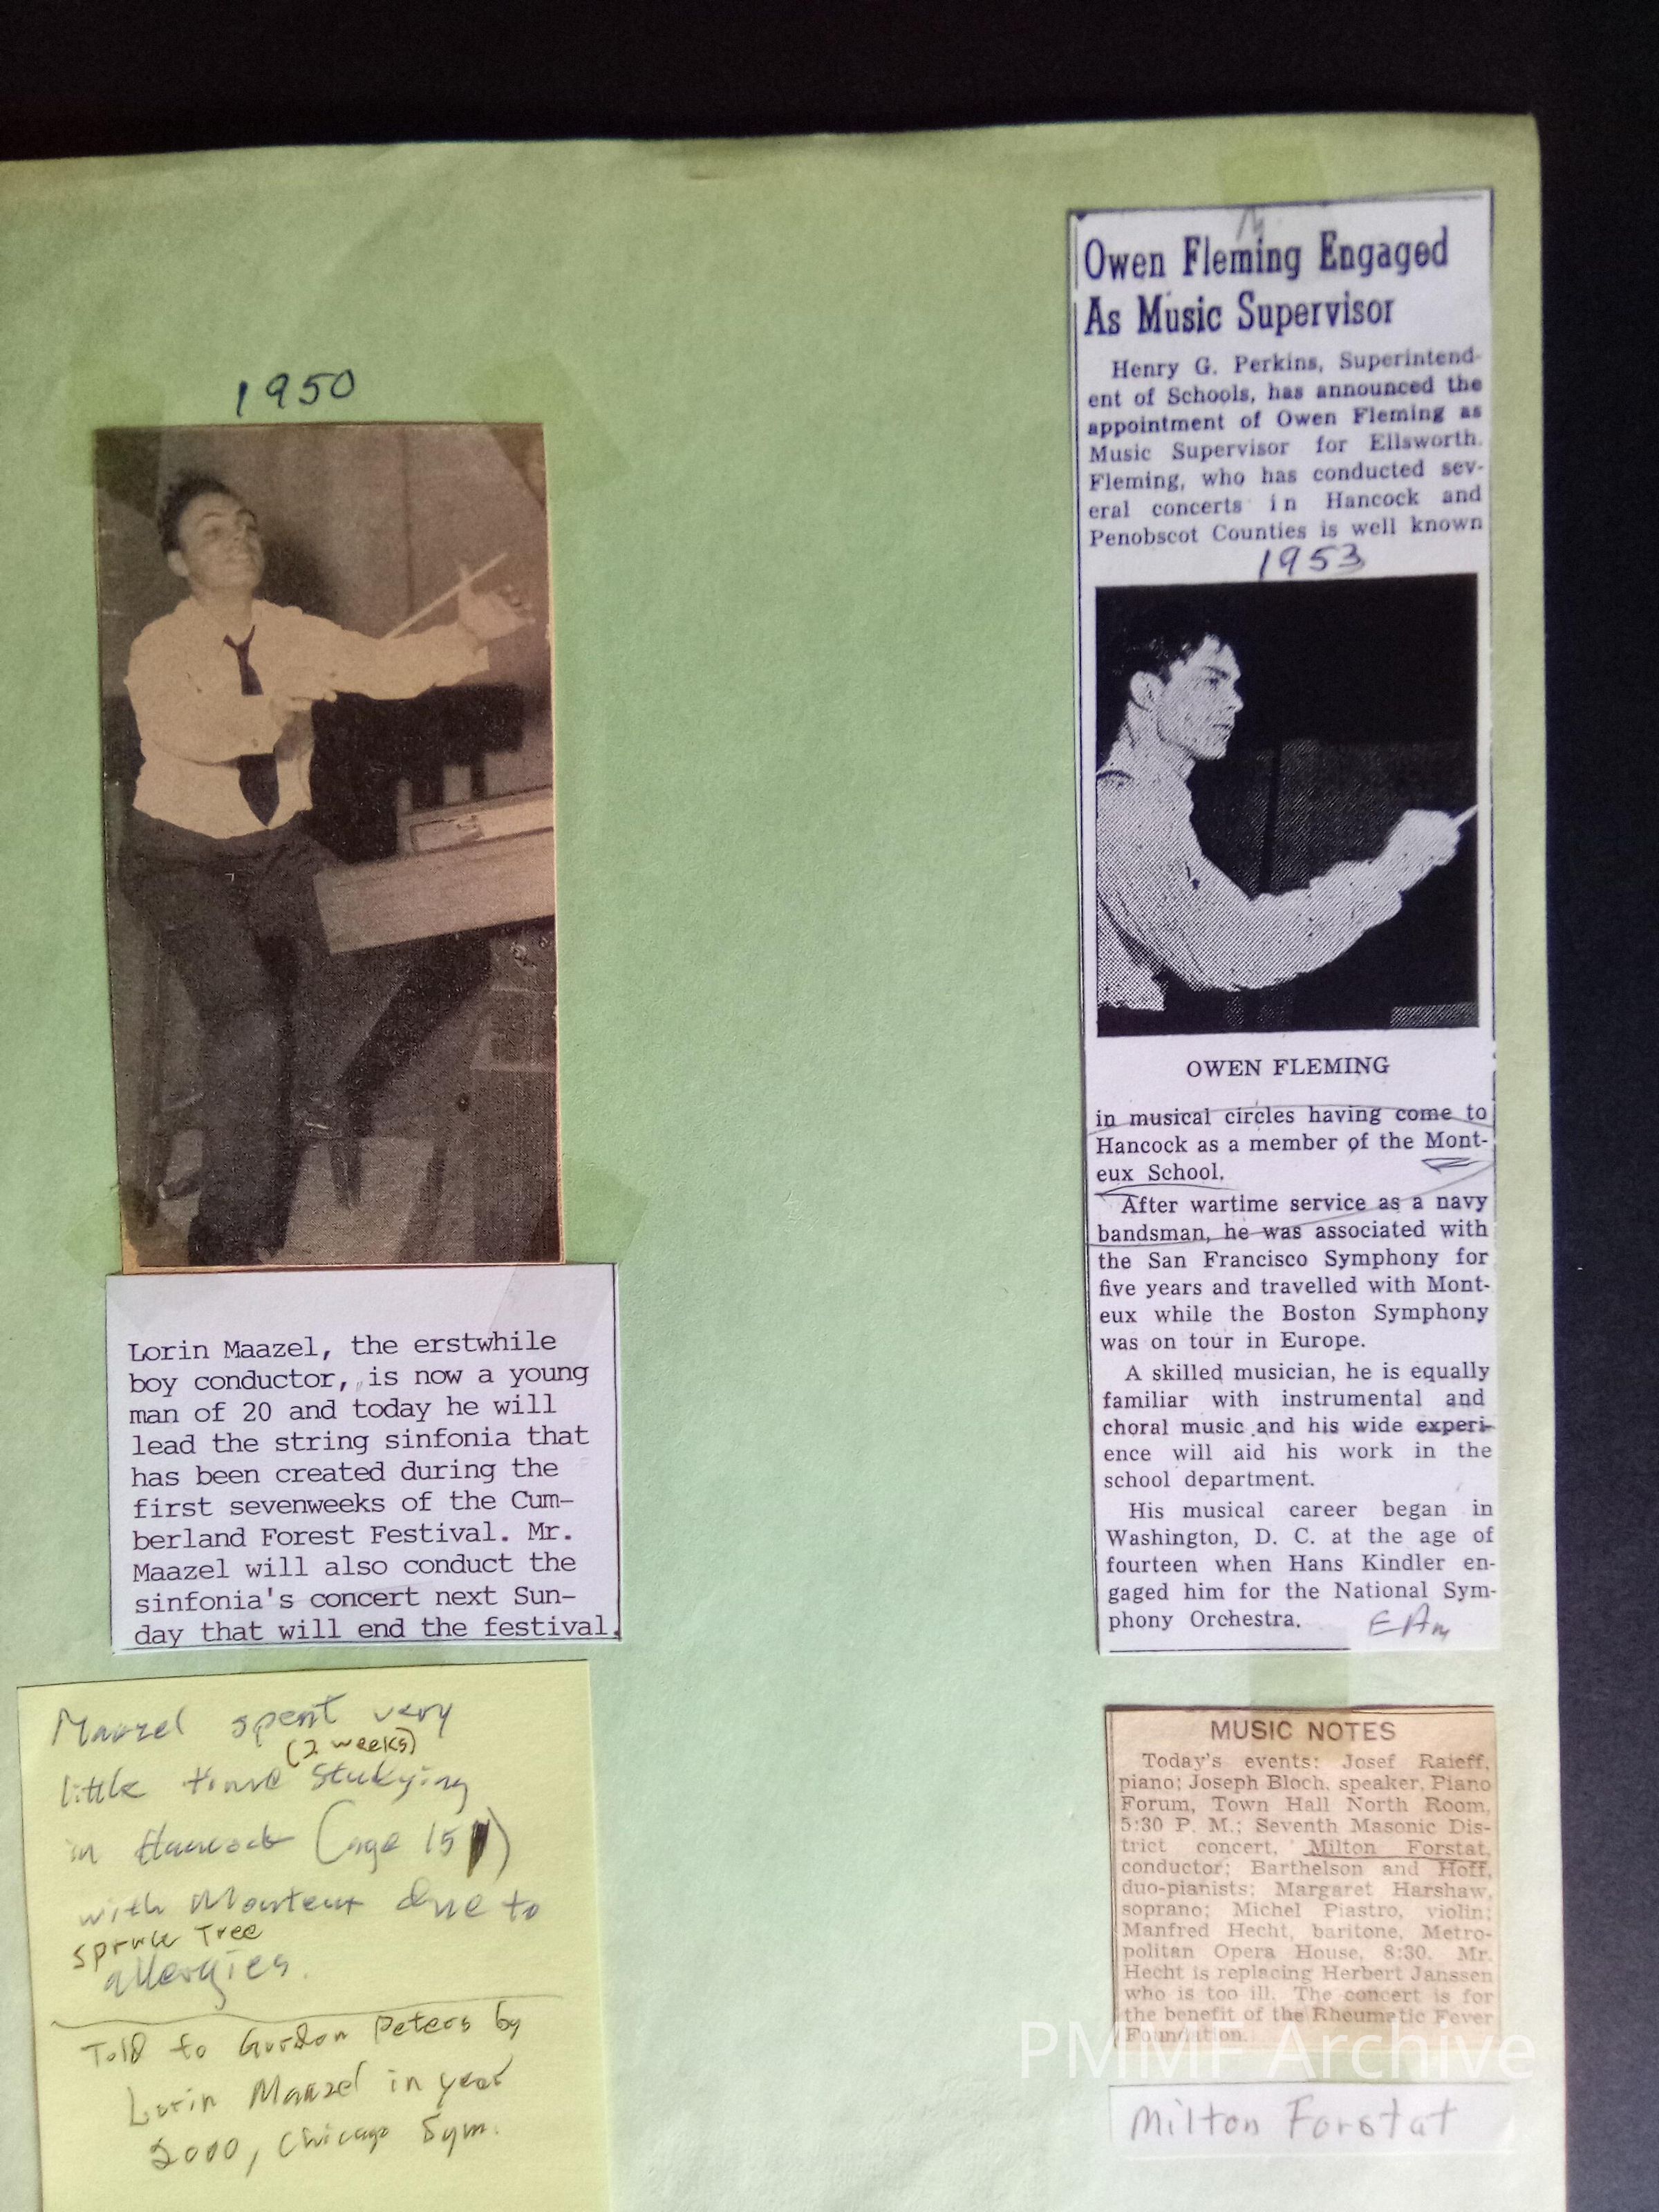 1950
Lorin Maazel, the erstwhile
boy conductor, is now a young
man of 20 and today he will
lead the string sinfonia that
has been created during the
first sevenweeks of the Cum-
berland Forest Festival. Mr.
Maazel will also conduct the
sinfonia's concert next Sun-
day that will end the festival.
Maazel spent very
(2 weeks)
little time studying
in Hancock (age 15)
with Monteux due to
spruce Tree
allergies.
Told to Gordon Peters by
Lorin Maazel in year
2000, Chicago Sym.
Owen Fleming Engaged
As Music Supervisor
Henry G. Perkins, Superintend-
ent of Schools, has announced the
appointment of Owen Fleming as
Music Supervisor for Ellsworth.
Fleming, who has conducted sev-
eral concerts in Hancock and
Penobscot Counties is well known
1953
OWEN FLEMING
in musical circles having come to
Hancock as a member of the Mont-
eux School.
After wartime service as a navy
bandsman, he was associated with
the San Francisco Symphony for
five years and travelled with Mont-
eux while the Boston Symphony
was on tour in Europe.
A skilled musician, he is equally
familiar with instrumental and
choral music and his wide experi-
ence will aid his work in the
school department.
His musical career began in
Washington, D. C. at the age of
fourteen when Hans Kindler en-
gaged him for the National Sym-
phony Orchestra.
MUSIC NOTES
Today's events: Josef Raieff,
piano; Joseph Bloch, speaker, Piano
Forum, Town Hall North Room,
5:30 P. M.; Seventh Masonic Dis-
trict concert, Milton Forstat,
conductor; Barthelson and Hoff,
duo-pianists; Margaret Harshaw,
soprano; Michel Piastro, violin;
Manfred Hecht, baritone, Metro-
politan Opera House, 8:30. Mr.
Hecht is replacing Herbert Janssen
who is too ill. The concert is for
the benefit of the Rheumatic Fever
Foundation.
PMMF Archive
Milton Forstat